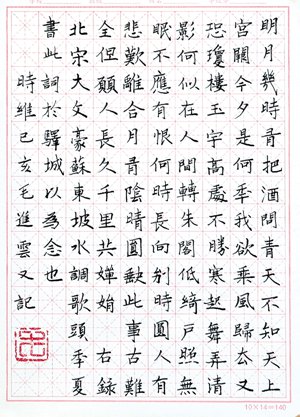 明月幾時有把酒問青天不知天上
宮闕今夕是何年我欲乘風歸去又
恐瓊樓玉宇高處不勝寒起舞弄清
影何似在人間轉朱閣低綺戶照無
眠不應有恨何事長向別時圓人有
悲歡離合月有陰晴圓缺此事古難
全但願人長久千里共嬋娟右錄
北宋大文豪蘇東坡水調歌頭季夏
書此詞於驛城以為念也
時維己亥毛進雲又記
10×14=140